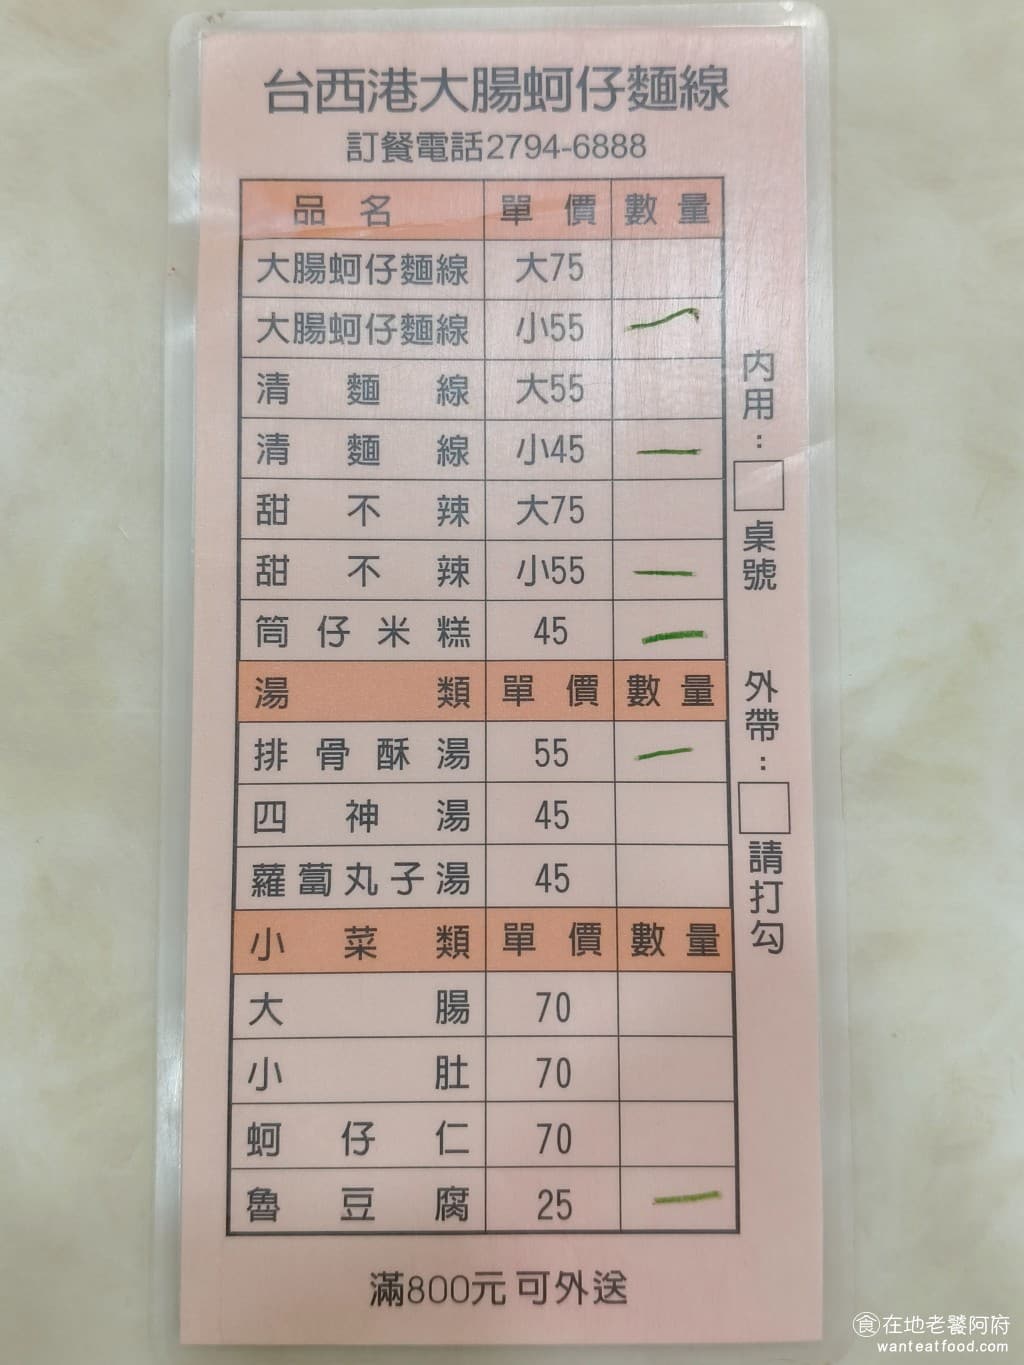 台西港大腸蚵仔麵線
訂餐電話2794-6888
品名 單價 數量
大腸蚵仔麵線 大75
大腸蚵仔麵線 小55 一
清麵線 大55
清麵線 小45 一
甜不辣 大75
甜不辣 小55 一
筒仔米糕 45 一
湯類 單價 數量
排骨酥湯 55 一
四神湯 45
蘿蔔丸子湯 45
小菜類 單價 數量
大腸 70
小肚 70
蚵仔仁 70
魯豆腐 25 一
內用：□桌號
外帶：□請打勾
滿800元可外送
食在地老饕阿府
wanteatfood.com